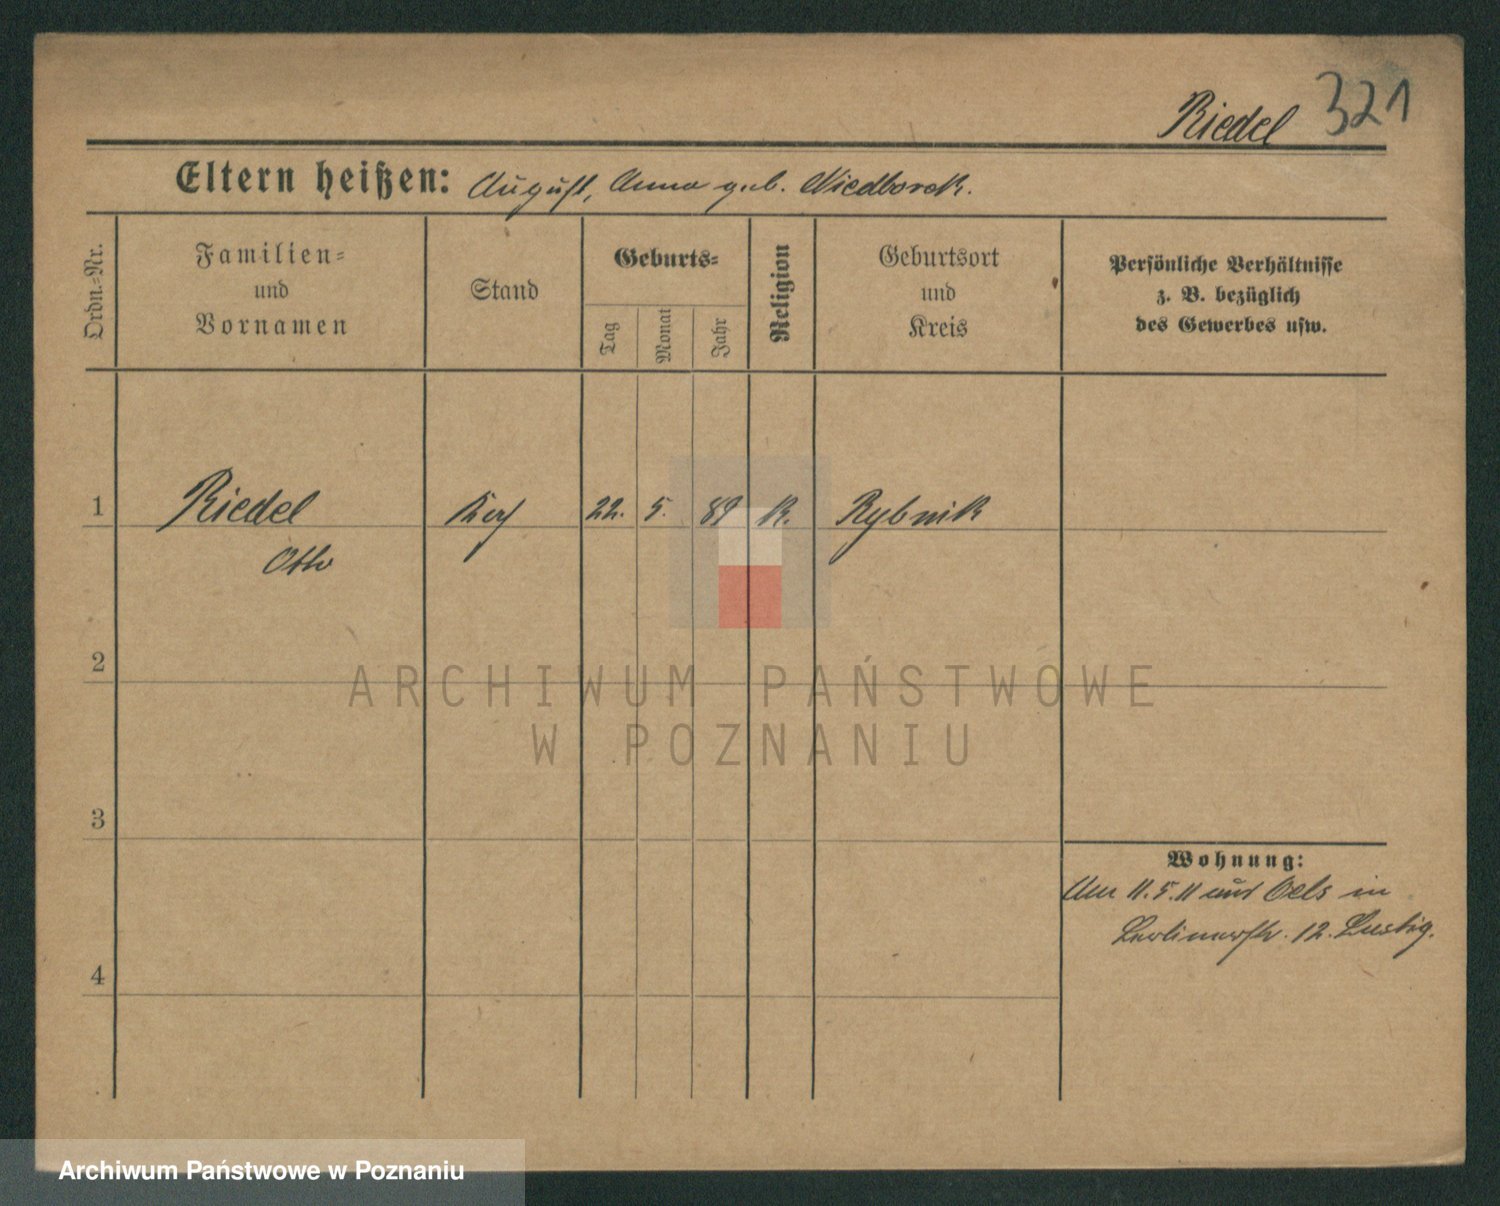 Riedel 321
Eltern heißen: August, Anna geb. Niedborek.
Ordn.-Nr.
Familien-
und
Vornamen
Stand
Geburts-
Tag
Monat
Jahr
Religion
Geburtsort
und
Kreis
Persönliche Verhältnisse
z. B. bezüglich
des Gewerbes usw.
1 Riedel 22. 5. 89 K. Rybnik
Otto
2
3
4
Wohnung:
11.5.11 aus Oels in
Berlinerstr. 12. Lustig.
ARCHIWUM PAŃSTWOWE
W POZNANIU
Archiwum Państwowe w Poznaniu